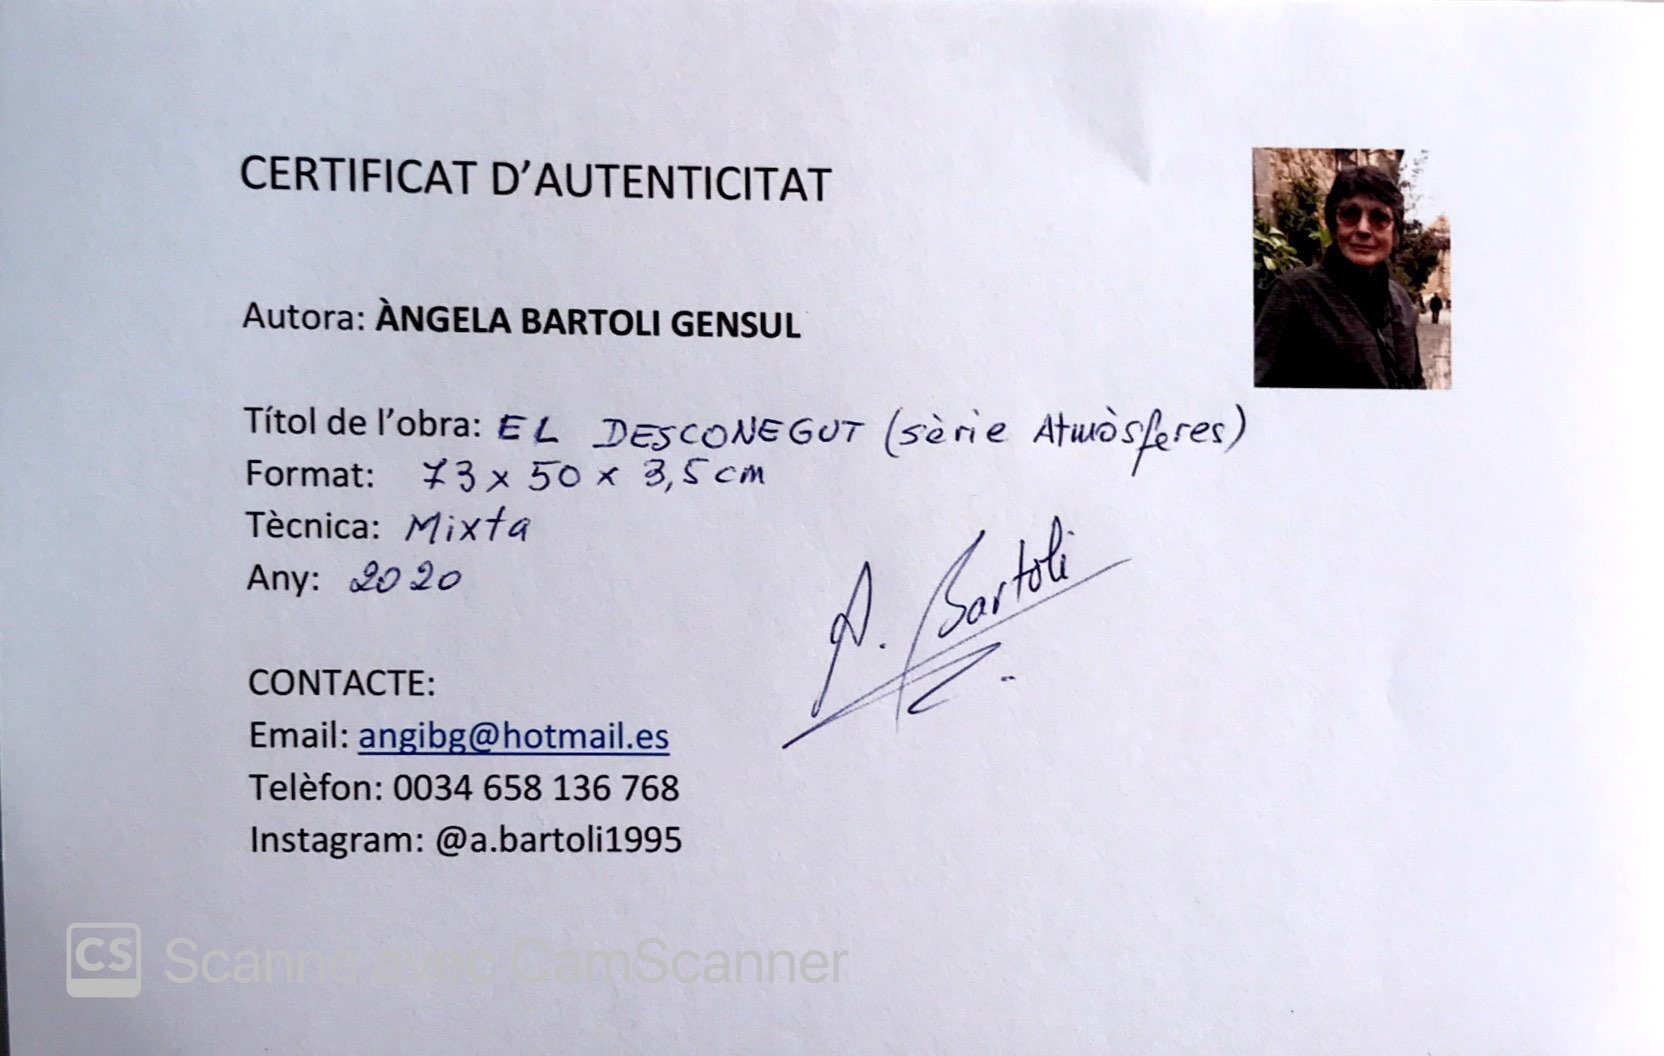 CERTIFICAT D'AUTENTICITAT
Autora: ÀNGELA BARTOLI GENSUL
Títol de l'obra: EL DESCONEGUT (sèrie Atmòsferes)
Format: 73 x 50 x 3,5 cm
Tècnica: Mixta
Any: 2020
A. Bartoli
CONTACTE:
Email: angibg@hotmail.es
Telèfon: 0034 658 136 768
Instagram: @a.bartoli1995
CS Scanné avec CamScanner